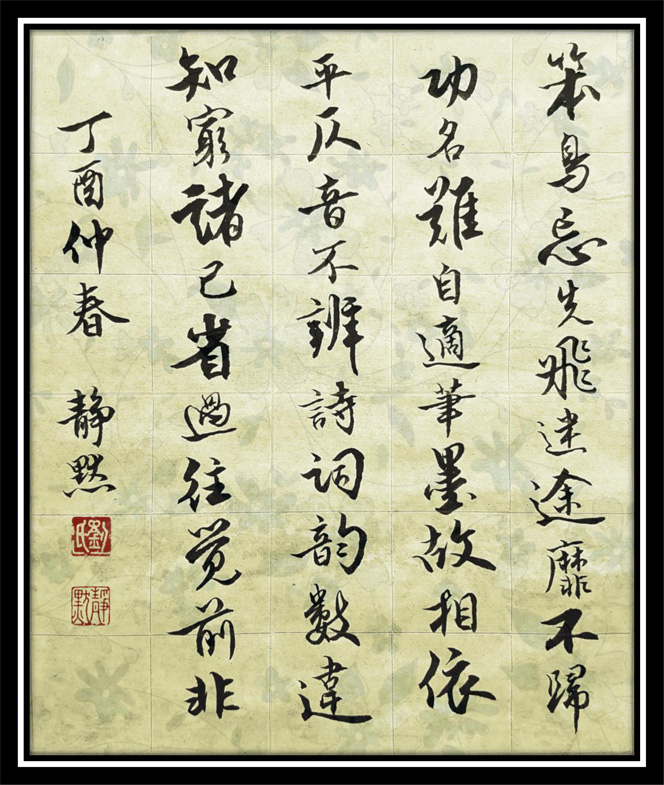 笨鳥忘先飛迷途靡不歸
功名難自適筆墨故相依
平仄音不辨詩詞韵數違
知窮諸己省過往觉前非
丁酉仲春 静默
劉氏
静默